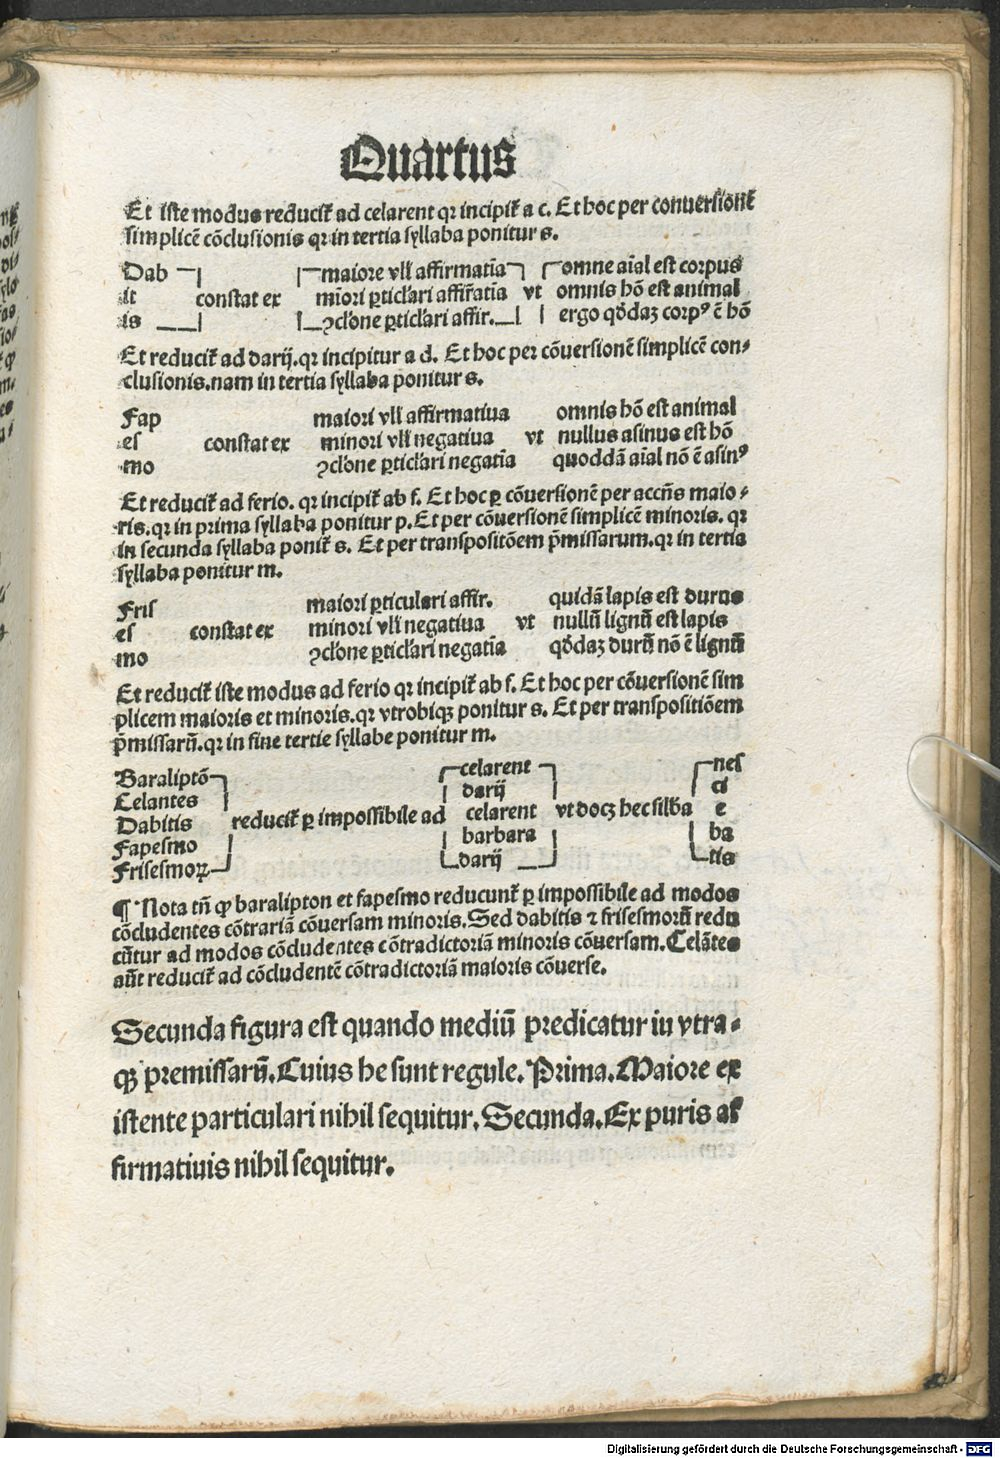 Quartus
Et iste modus reducit᷑ ad celarent qꝛ incipit᷑ a c. Et hoc per conuersionē
simplicē cōclusionis qꝛ in tertia syllaba ponitur s.
Dab maiore vl̄i affirmatīa omne aīal est corpus
it constat ex mīori ꝑticl'ari affir̄atīa vt omnis hō est animal
is ꝯcl'one ꝑticl'ari affir. ergo qd̄daꝫ corpꝰ ē hō
Et reducit᷑ ad darij. qꝛ incipitur a d. Et hoc per cōuersionē simplicē con⸗
clusionis. nam in tertia syllaba ponitur s.
Fap maiori vl̄i affirmatiua omnis hō est animal
es constat ex minori vl̄i negatiua vt nullus asinus est hō
mo ꝯcl'one ꝑticl'ari negatīa quoddā aīal nō ē asinꝰ
Et reducit᷑ ad ferio. qꝛ incipit᷑ ab f. Et hoc ꝑ cōuersionē per accn̄s maio⸗
ris. qꝛ in prima syllaba ponitur p. Et per cōuersionē simplicē minoris. qꝛ
in secunda syllaba ponit᷑ s. Et per transpositōem p̄missarum. qꝛ in tertia
syllaba ponitur m.
Fris maiori ꝑticulari affir. quidā lapis est durus
es constat ex minori vl̄i negatiua vt nullū lignū est lapis
mo ꝯcl'one ꝑticl'ari negatīa qd̄daꝫ durū nō ē lignū
Et reducit᷑ iste modus ad ferio qꝛ incipit᷑ ab f. Et hoc per cōuersionē sim
plicem maioris et minoris. qꝛ vtrobiqꝫ ponitur s. Et per transpositiōem
p̄missarū. qꝛ in fine tertie syllabe ponitur m.
Baraliptō celarent nes
Celantes darij ci
Dabitis reducit᷑ ꝑ impossibile ad celarent vt docꝫ hec sillība e
Fapesmo barbara ba
Frisesmoꝝ darij tis
¶ Nota tn̄ ꝙ baralipton et fapesmo reducunt᷑ ꝑ impossibile ad modos
cōcludentes cōtrariā cōuersam minoris. Sed dabitis ⁊ frisesmorū redu
cūtur ad modos cōcludentes cōtradictoriā minoris cōuersam. Celātes
aūt reducit᷑ ad cōcludentē cōtradictoriā maioris cōuerse.
Secunda figura est quando mediū predicatur in vtra⸗
qꝫ premissarū. Cuius he sunt regule. Prima. Maiore ex
istente particulari nihil sequitur. Secunda. Ex puris af
firmatiuis nihil sequitur.
Digitalisierung gefördert durch die Deutsche Forschungsgemeinschaft - DFG